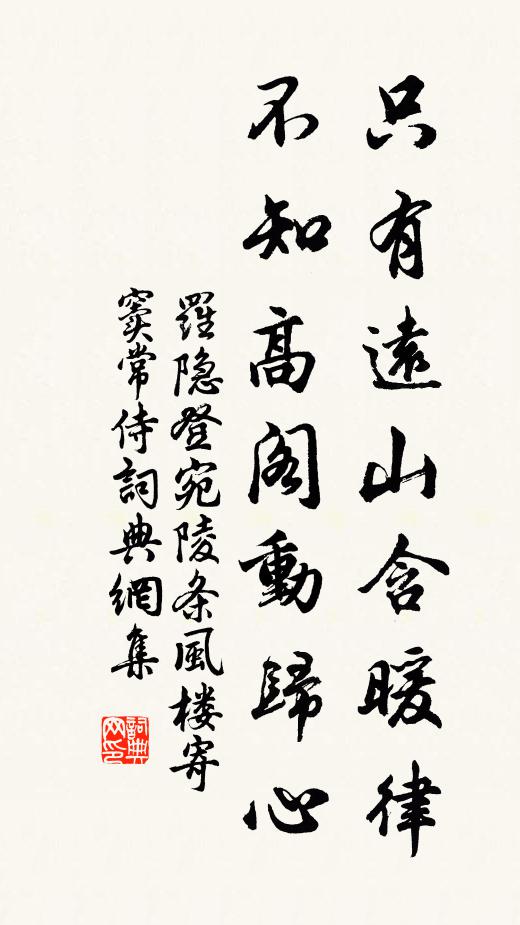 只有遠山含暖律
不知高阁動歸心
羅隐登宛陵条風楼寄
窦常侍詞典網集
詞典网印